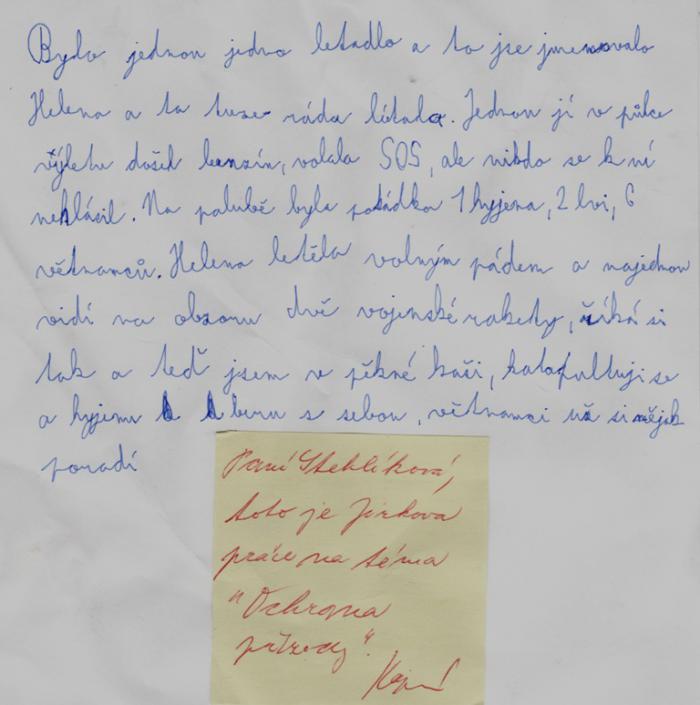 Bylo jednou jedno letadlo a to jse jmenovalo
Helena a ta tuze ráda lítala. Jednou jí v půlce
výletu došel benzín, volala SOS, ale nikdo se k ní
nehlásil. Na palubě byla posádka 1 hyjena, 2 lvi, 6
větnamců. Helena letěla volným pádem a najednou
vidí na obzoru dvě vojenské rakety, říká si
tak a teď jsem v pěkné kaši, katapultuji se
a hyjenu beru s sebou, větnamci už si nějak
poradí
Paní Steklíková,
toto je Jirkova
práce na téma
"Ochrana
přírody".